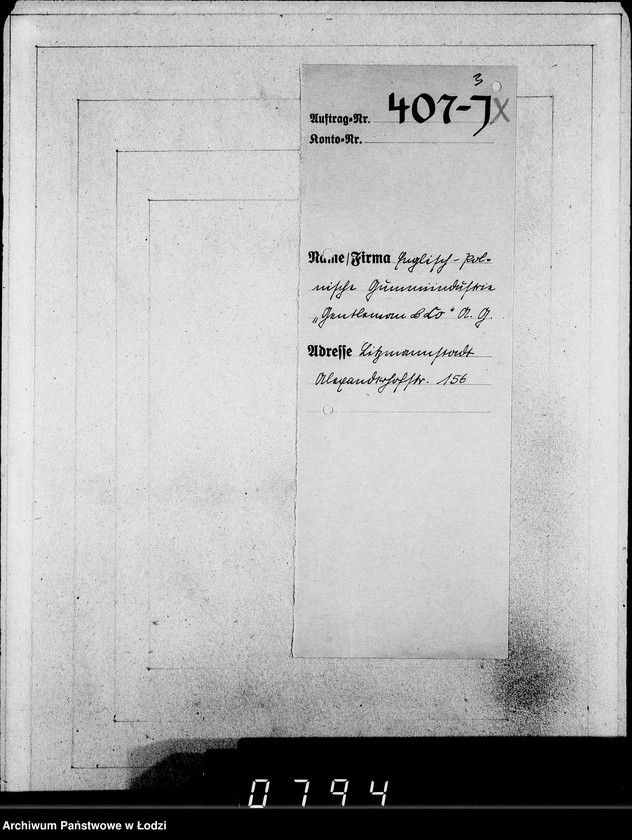 3
Auftrag=Nr. 407-J X
Konto=Nr.
Name/Firma Englisch-Pol=
nische Gummiindustrie
„Gentleman & Co" A. G.
Adresse Litzmannstadt
Alexanderhofstr. 156
0794
Archiwum Państwowe w Łodzi